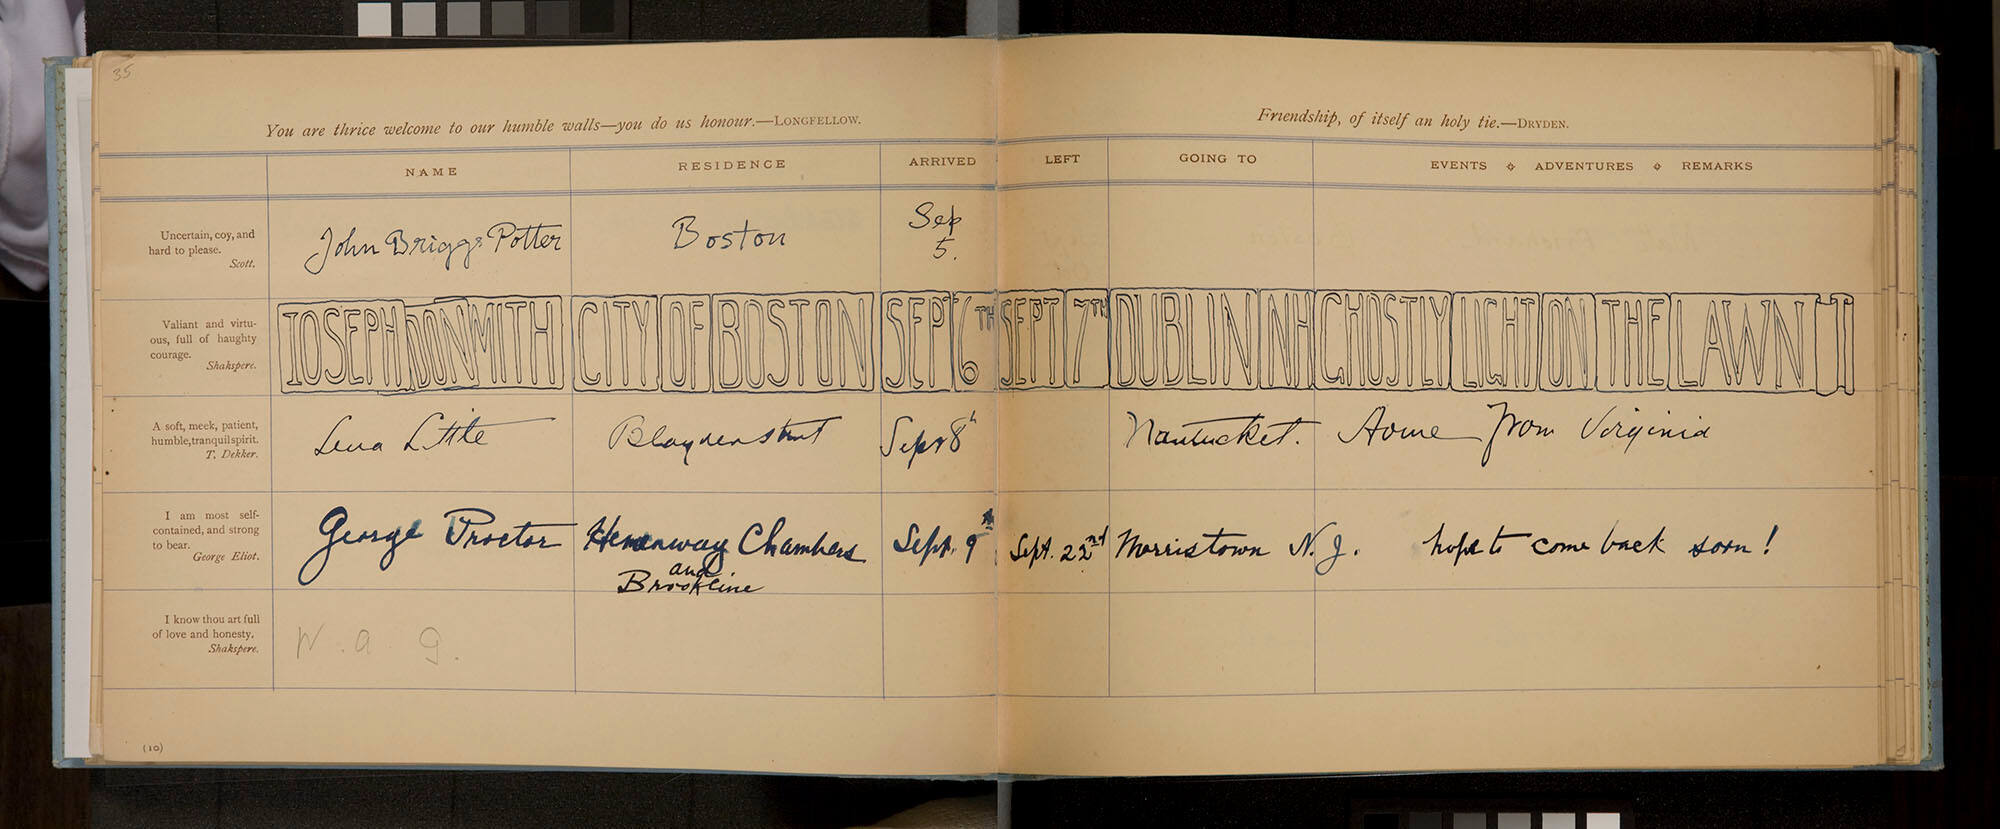 35
You are thrice welcome to our humble walls—you do us honour.—LONGFELLOW.
Friendship, of itself an holy tie.—DRYDEN.
NAME RESIDENCE ARRIVED LEFT GOING TO EVENTS ADVENTURES REMARKS
Uncertain, coy, and
hard to please.
Scott.
John Briggs Potter Boston Sep
5.
Valiant and virtu-
ous, full of haughty
courage.
Shakspere.
IOSEPH SMITH CITY OF BOSTON SEPT 6TH SEPT 7TH DUBLIN NH GHOSTLY LIGHT ON THE LAWN
A soft, meek, patient,
humble, tranquil spirit.
T. Dekker.
Lena Little Blagden Street Sept 8th Nantucket. Home from Virginia
I am most self-
contained, and strong
to bear.
George Eliot.
George Proctor Hemenway Chambers Sept. 9th Sept. 22nd Morristown N.J. hope to come back soon!
and
Brookline
I know thou art full
of love and honesty.
Shakspere.
N. a. g.
(10)